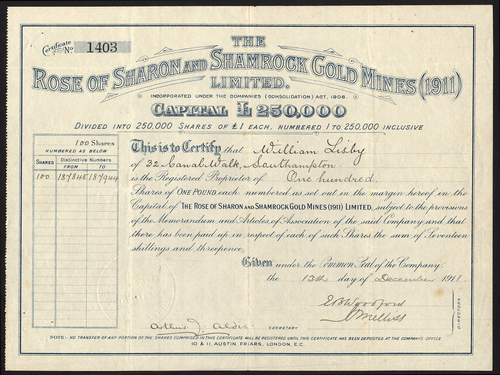 Certificate No. 1403
THE
ROSE OF SHARON AND SHAMROCK GOLD MINES (1911)
LIMITED.
INCORPORATED UNDER THE COMPANIES (CONSOLIDATION) ACT, 1908.
CAPITAL £250,000
DIVIDED INTO 250,000 SHARES OF £1 EACH, NUMBERED 1 TO 250,000 INCLUSIVE
100 Shares
NUMBERED AS BELOW
SHARES Distinctive Numbers
FROM TO
100 187845 187944
This is to Certify that William Lisby
of 32 Canal Walk, Southampton
is the Registered Proprietor of One hundred
Shares of ONE POUND each numbered as set out in the margin hereof in the
Capital of THE ROSE OF SHARON AND SHAMROCK GOLD MINES (1911) LIMITED, subject to the provisions
of the Memorandum and Articles of Association of the said Company and that
there has been paid up in respect of each of such Shares the sum of Seventeen
shillings and threepence.
Given under the Common Seal of the Company,
the 13th day of December 1911
DIRECTORS.
Arthur J. SECRETARY
NOTE:- NO TRANSFER OF ANY PORTION OF THE SHARES COMPRISED IN THIS CERTIFICATE WILL BE REGISTERED UNTIL THIS CERTIFICATE HAS BEEN DEPOSITED AT THE COMPANY'S OFFICE
10 & 11, AUSTIN FRIARS, LONDON, E.C.